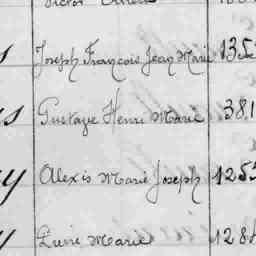 Victor
s Joseph François Jean Marie 135
s Gustave Henri Marie 381
y Alexis Marie Joseph 1253
y Marie 128